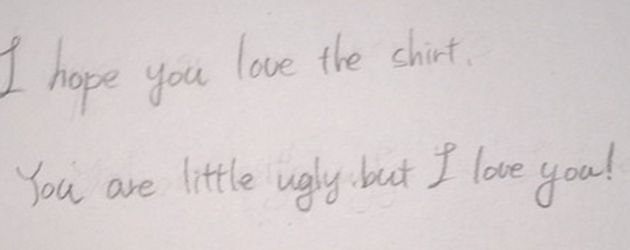 I hope you love the shirt.
You are little ugly.but I love you!